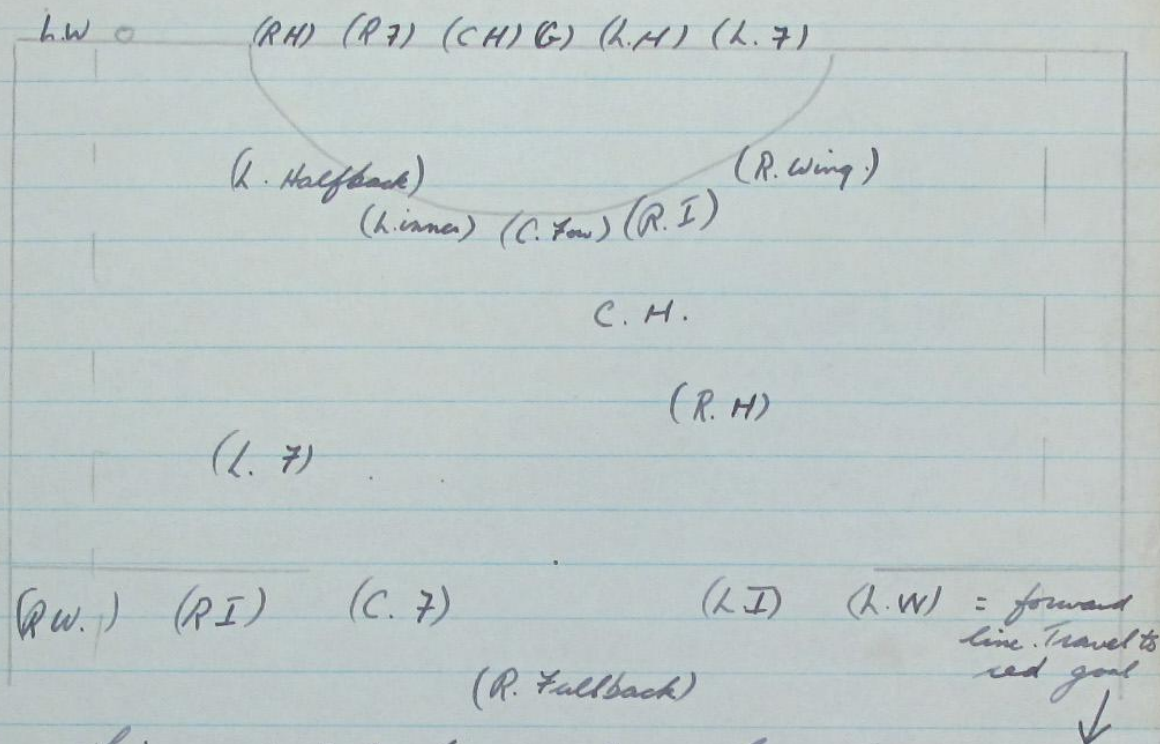 L.W (RH) (R7) (CH) (G) (L.H) (L.7)
(L. Halfback) (R. Wing.)
(L.inner) (C. Fow) (R.I)
C. H.
(R. H)
(L. 7)
(RW.) (RI) (C. 7) (L I) (L.W) = forward
line. Travel to
red goal
(R. Fullback)